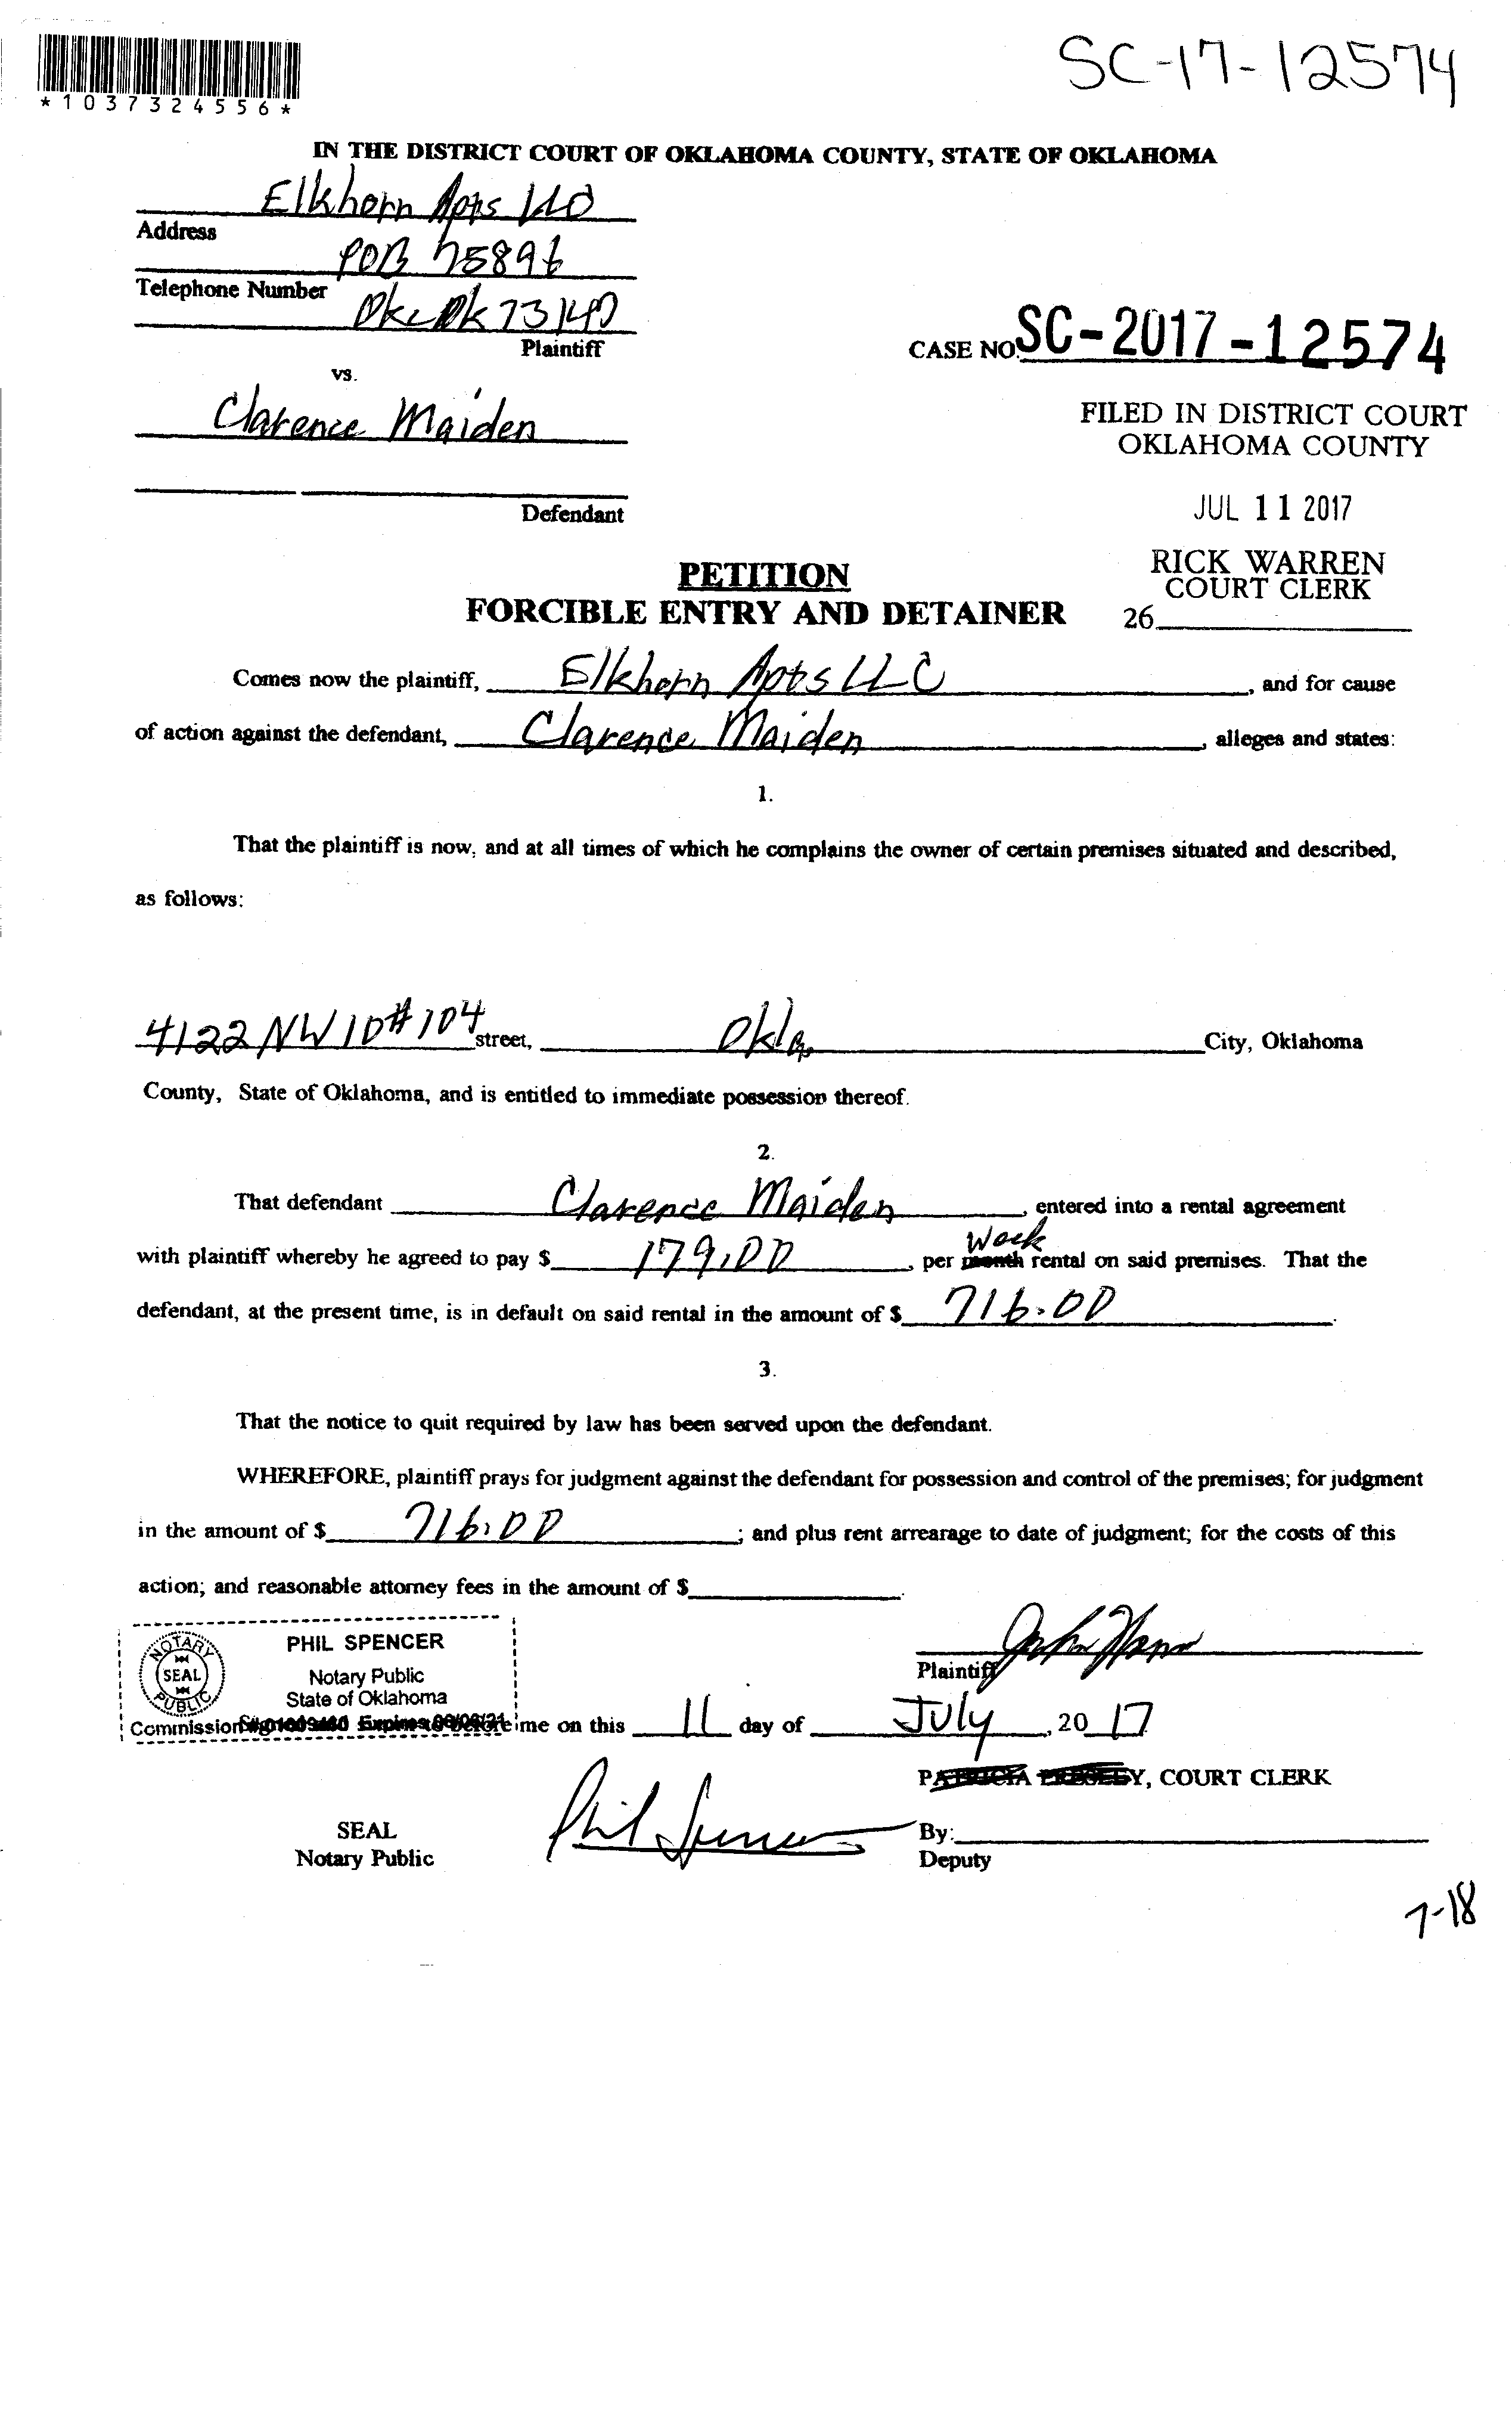 SC-17-12574
*1037324556*
IN THE DISTRICT COURT OF OKLAHOMA COUNTY, STATE OF OKLAHOMA
Elkhorn Apts LLC
Address
POB 75896
Telephone Number
Okc Ok 73147
Plaintiff
CASE NO. SC-2017-12574
vs.
Clarence Maiden
FILED IN DISTRICT COURT
OKLAHOMA COUNTY
JUL 11 2017
Defendant
RICK WARREN
COURT CLERK
26
PETITION
FORCIBLE ENTRY AND DETAINER
Comes now the plaintiff, Elkhorn Apts LLC, and for cause
of action against the defendant, Clarence Maiden, alleges and states:
1.
That the plaintiff is now, and at all times of which he complains the owner of certain premises situated and described,
as follows:
4122 NW 10 #104 street, Okla. City, Oklahoma
County, State of Oklahoma, and is entitled to immediate possession thereof.
2.
That defendant Clarence Maiden, entered into a rental agreement
with plaintiff whereby he agreed to pay $ 179.00, per month Week rental on said premises. That the
defendant, at the present time, is in default on said rental in the amount of $ 716.00.
3.
That the notice to quit required by law has been served upon the defendant.
WHEREFORE, plaintiff prays for judgment against the defendant for possession and control of the premises; for judgment
in the amount of $ 716.00; and plus rent arrearage to date of judgment; for the costs of this
action; and reasonable attorney fees in the amount of $
NOTARY PUBLIC SEAL
PHIL SPENCER
Notary Public
State of Oklahoma
Plaintiff
Commission Expires me on this 11 day of July, 2017
COURT CLERK
Phil Spencer
SEAL
Notary Public
By:
Deputy
7-18